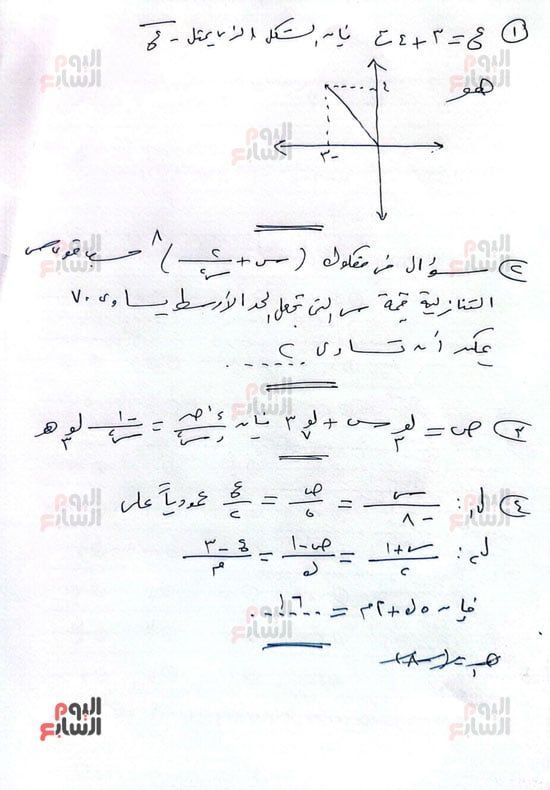 ١) ع = ٣ + ٤ ت فإن الشكل الذى يمثل - ع
هو
٤
- ٣
٢) سؤال فى مفكوك (س + ٢/س)^٨ حسب قوى س
التنازلية قيمة س التى تجعل الحد الأوسط يساوى ٧٠
يمكن أن تساوى ؟ ......
٣) ص = لو٣ س + لو٧ ٣ فإن ءص/ءس = ١/س لو٣ هـ
٤) ل١: س/-٨ = ص/٥ = ع/٢ عمودياً على
ل٢: س+١/٢ = ص-١/ك = ع-٣/م
فإن ٥ك + ٢م = ...١٦...
اليوم السابع